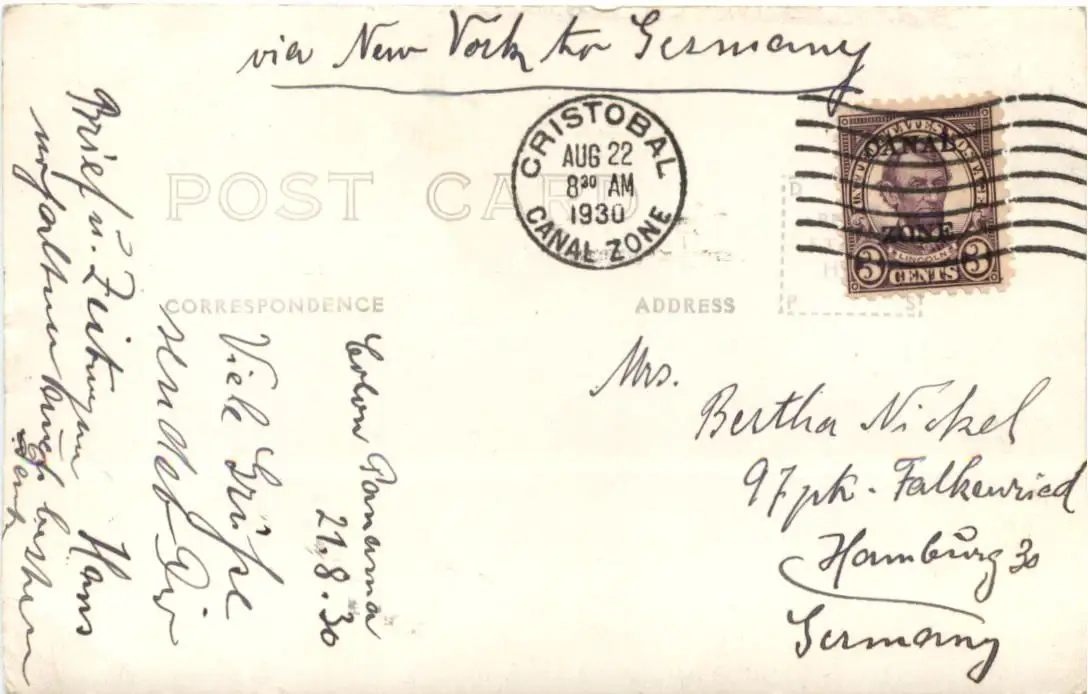 via New York for Germany
CRISTOBAL
AUG 22
8³⁰ AM
1930
CANAL ZONE
CANAL
ZONE
LINCOLN
3 CENTS 3
POST CARD
CORRESPONDENCE
ADDRESS
Colon Panama
21.8.30
Viele Grüße
sendet Dir
Hans
Brief u. Zeitungen
erhalten besten
Dank
Mrs.
Bertha Nickel
97 ptr. Falkenried
Hamburg 30
Germany